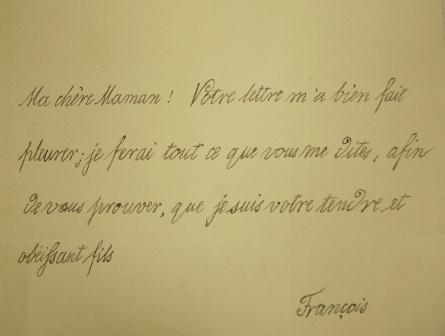 Ma chère Maman ! Votre lettre m'a bien fait
pleurer; je ferai tout ce que vous me dites, afin
de vous prouver, que je suis votre tendre et
obéissant fils
François